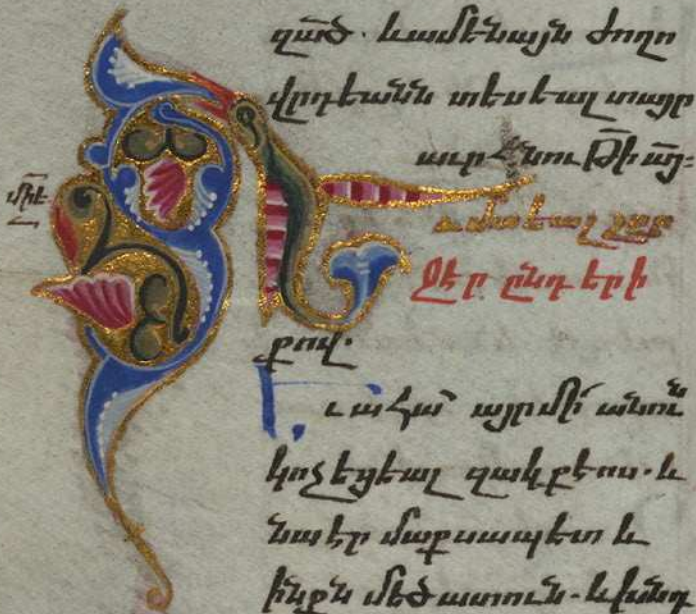 զա՟ծ. և ամենայն ժողո
վրդեանն տեսեալ տայր
աւրհնութի՟ ա՟յ։
Եւ մտեալ շըր
ջէր ընդ երի
քով.
Եւ ահա՛ այր մի՛ անուն
կոչեցեալ զակքէոս. և
նա էր մաքսապետ և
ինքն մեծատուն. և խնդ